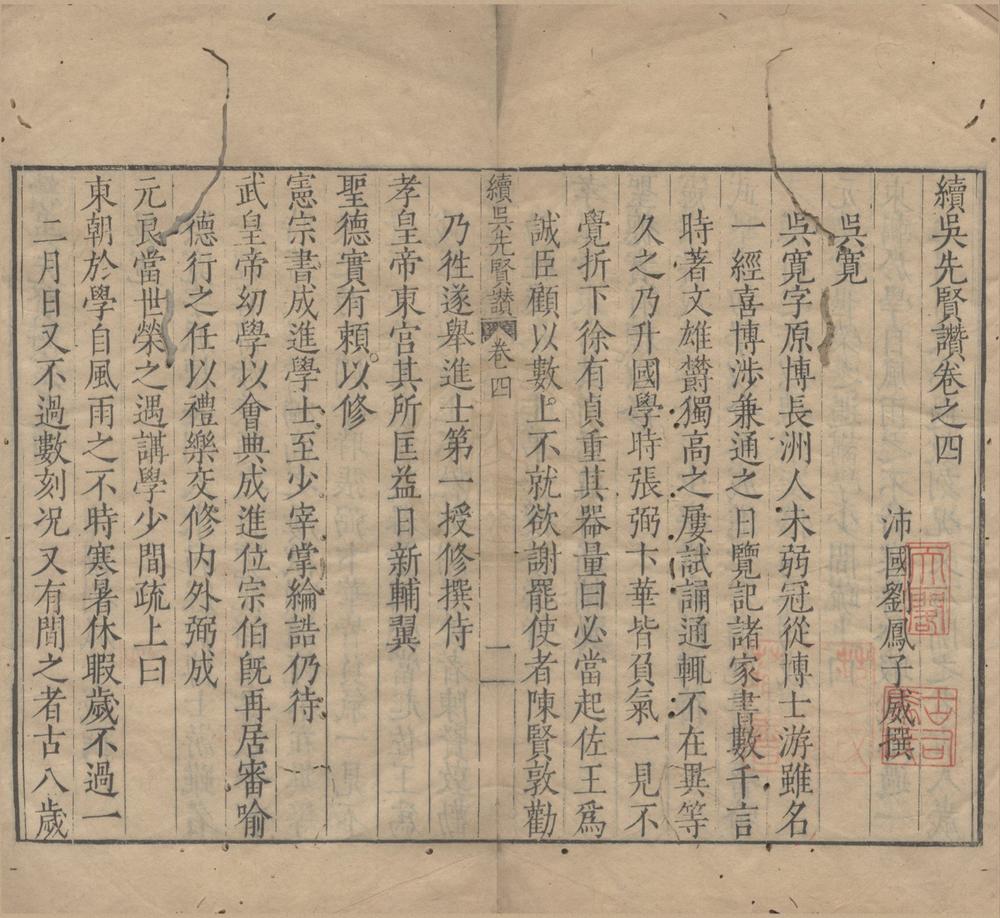 續吳先賢讚卷之四
沛國劉鳳子威撰
吳寬
吳寬字原博長洲人未弱冠從博士游雖名
一經喜博涉兼通之日覽記諸家書數千言
時著文雄鬱獨高之屢試誦通輒不在異等
久之乃升國學時張弼卞華皆負氣一見不
覺折下徐有貞重其器量曰必當起佐王爲
誠臣顧以數上不就欲謝罷使者陳賢敦勸
續吳先賢讚 卷四 一
乃徃遂舉進士第一授修撰侍
孝皇帝東宮其所匡益日新輔翼
聖德實有賴以修
憲宗書成進學士至少宰掌綸誥仍待
武皇帝幼學以會典成進位宗伯旣再居審喻
德行之任以禮樂交修內外弼成
元良當世榮之遇講學少間疏上曰
東朝於學自風雨之不時寒暑休暇歲不過一
二月日又不過數刻况又有間之者古八歲